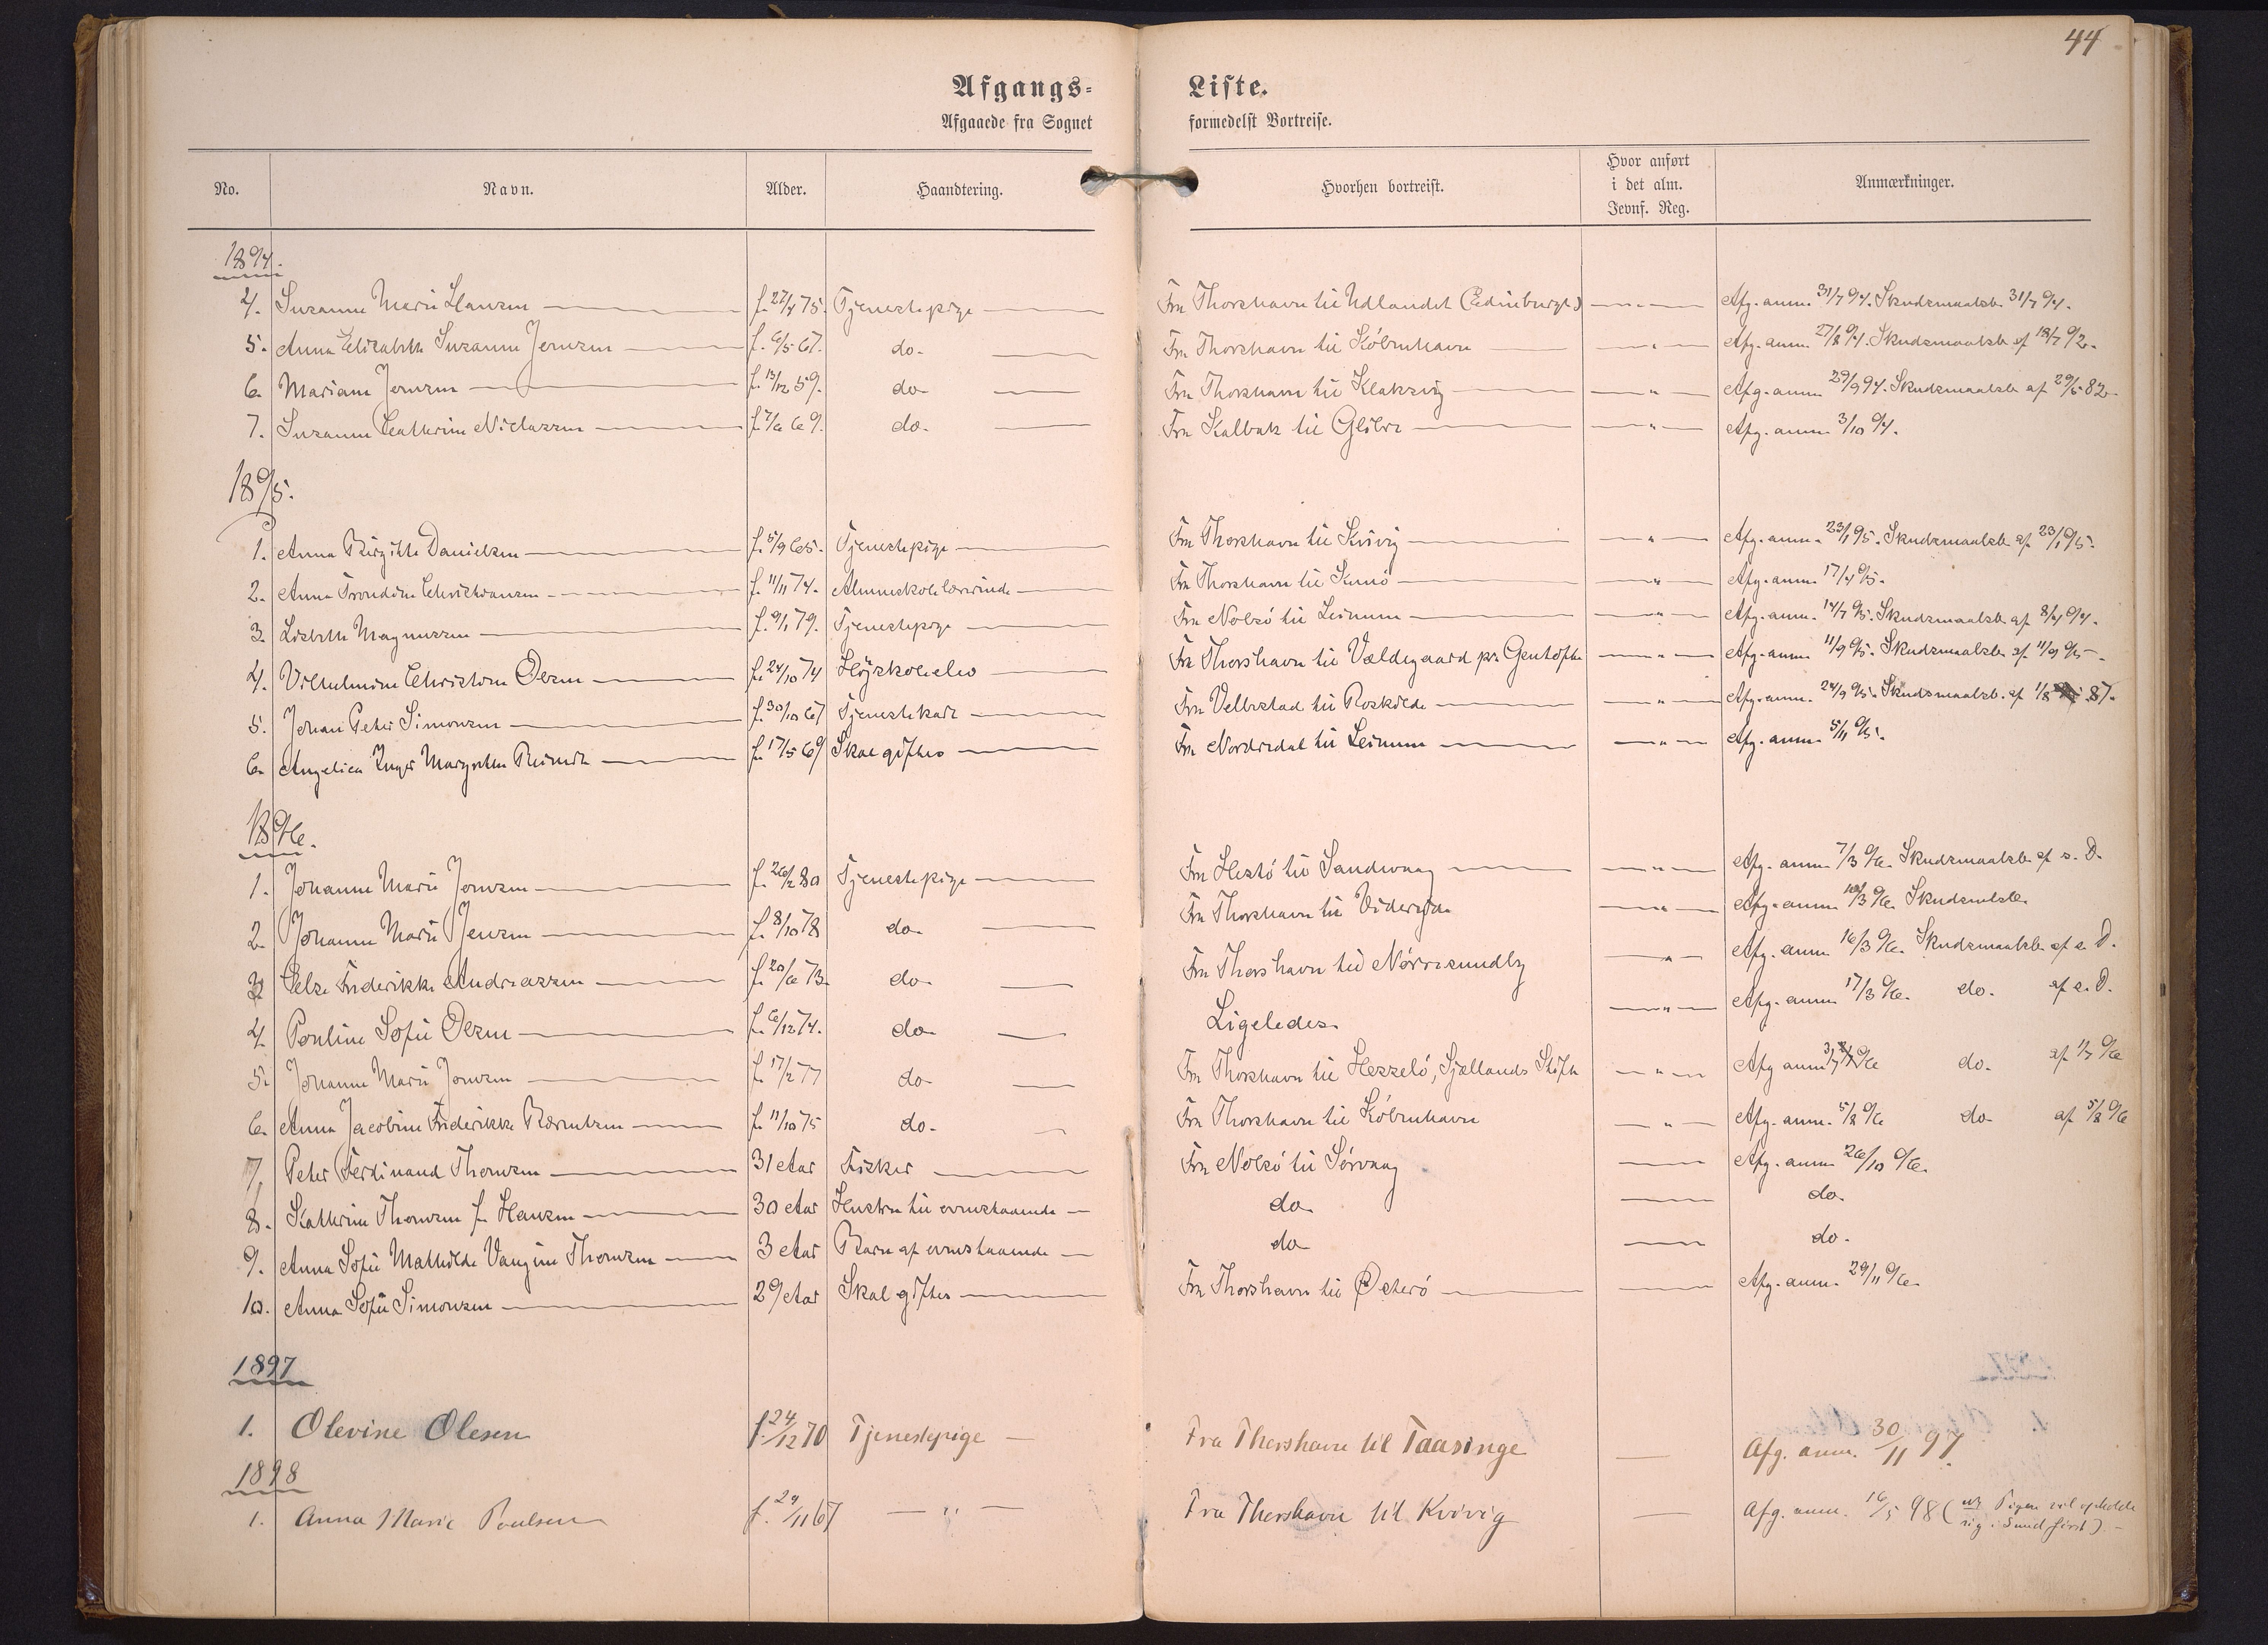 44
Afgangs- Liste.
Afgaaede fra Sognet formedelst Bortreise.
No. Navn. Alder. Haandtering. Hvorhen bortreist. Hvor anført i det alm. Jevnf. Reg. Anmærkninger.
1894.
4. Suzanne Marie Hansen f. 27/4 75. Tjenestepige Fra Thorshavn til Udlandet (Edinburgh) — " — Afg. anm. 31/7 94. Skudsmaalsb. 31/7 94.
5. Anna Elisabeth Suzanne Jensen f. 6/5 67. do. Fra Thorshavn til Köbenhavn — " — Afg. anm. 27/8 94. Skudsmaalsb. af 18/7 92.
6. Mariane Jensen f. 13/12 59. do. Fra Thorshavn til Klaksvig — " — Afg. anm. 29/9 94. Skudsmaalsb. af 29/5 82.
7. Suzanne Cathrine Niclassen f. 7/6 69. do. Fra Kalbak til Glibre — " — Afg. anm. 3/10 94.
1895.
1. Anna Birgitte Danielsen f. 5/9 65. Tjenestepige Fra Thorshavn til Kvivig — " — Afg. anm. 23/1 95. Skudsmaalsb. af 23/1 95.
2. Anna Trondine Christiansen f. 11/11 74. Almueskolelærerinde Fra Thorshavn til Kunö — " — Afg. anm. 17/4 95.
3. Lisbeth Magnussen f. 9/1 79. Tjenestepige Fra Nolsö til Leinum — " — Afg. anm. 14/7 95. Skudsmaalsb. af 8/4 94.
4. Vilhelmine Christine Øssen f. 24/10 74 Höjskoleelev Fra Thorshavn til Vældegaard pr. Gentofte — " — Afg. anm. 11/9 95. Skudsmaalsb. af 11/9 95.
5. Johan Peter Simonsen f. 30/10 67 Tjenestekarl Fra Velbestad til Roskilde — " — Afg. anm. 24/9 95. Skudsmaalsb. af 1/8 87.
6. Angelica Inger Margrethe Reinert f. 17/5 69 Skal giftes Fra Nordredal til Leinum — " — Afg. anm. 5/11 95.
1896.
1. Johanne Marie Jensen f. 26/2 80 Tjenestepige Fra Hestö til Sandevaag — " — Afg. anm. 7/3 96. Skudsmaalsb. af s. D.
2. Johanne Marie Jensen f. 8/10 78 do. Fra Thorshavn til Videreide — " — Afg. anm. 10/3 96. Skudsmlsb.
3. Else Frederikke Andreassen f. 20/6 73. do. Fra Thorshavn til Nörresundby — " — Afg. anm. 16/3 96. Skudsmaalsb. af s. D.
4. Pouline Sofie Øssen f. 6/12 74. do. Ligeledes. — " — Afg. anm. 17/3 96. do. af s. D.
5. Johanne Marie Jensen f. 17/2 77 do. Fra Thorshavn til Hesselö, Sjællands Stift — " — Afg. anm. 3/7 96 do. af 1/7 96
6. Anna Jacobine Frederikke Berntsen f. 11/10 75 do. Fra Thorshavn til Köbenhavn — " — Afg. anm. 5/8 96 do. af 5/8 96
7. Peter Ferdinand Thomsen 31 Aar Fisker Fra Nolsö til Sörvaag — Afg. anm. 26/10 96.
8. Kathrine Thomsen f. Hansen 30 Aar Hustru til ovenstaaende do. — do.
9. Anna Sofie Mathilde Vangine Thomsen 3 Aar Barn af ovenstaaende do. — do.
10. Anna Sofie Simonsen 29 Aar Skal giftes Fra Thorshavn til Østerö — Afg. anm. 29/11 96.
1897
1. Olevine Olesen f. 24/12 70 Tjenestepige Fra Thorshavn til Taasinge — Afg. anm. 30/11 97.
1898
1. Anna Marie Poulsen f. 24/11 67 — " — Fra Thorshavn til Kvivig — Afg. anm. 16/5 98 (Pigen vil opholde
sig i Sund först).